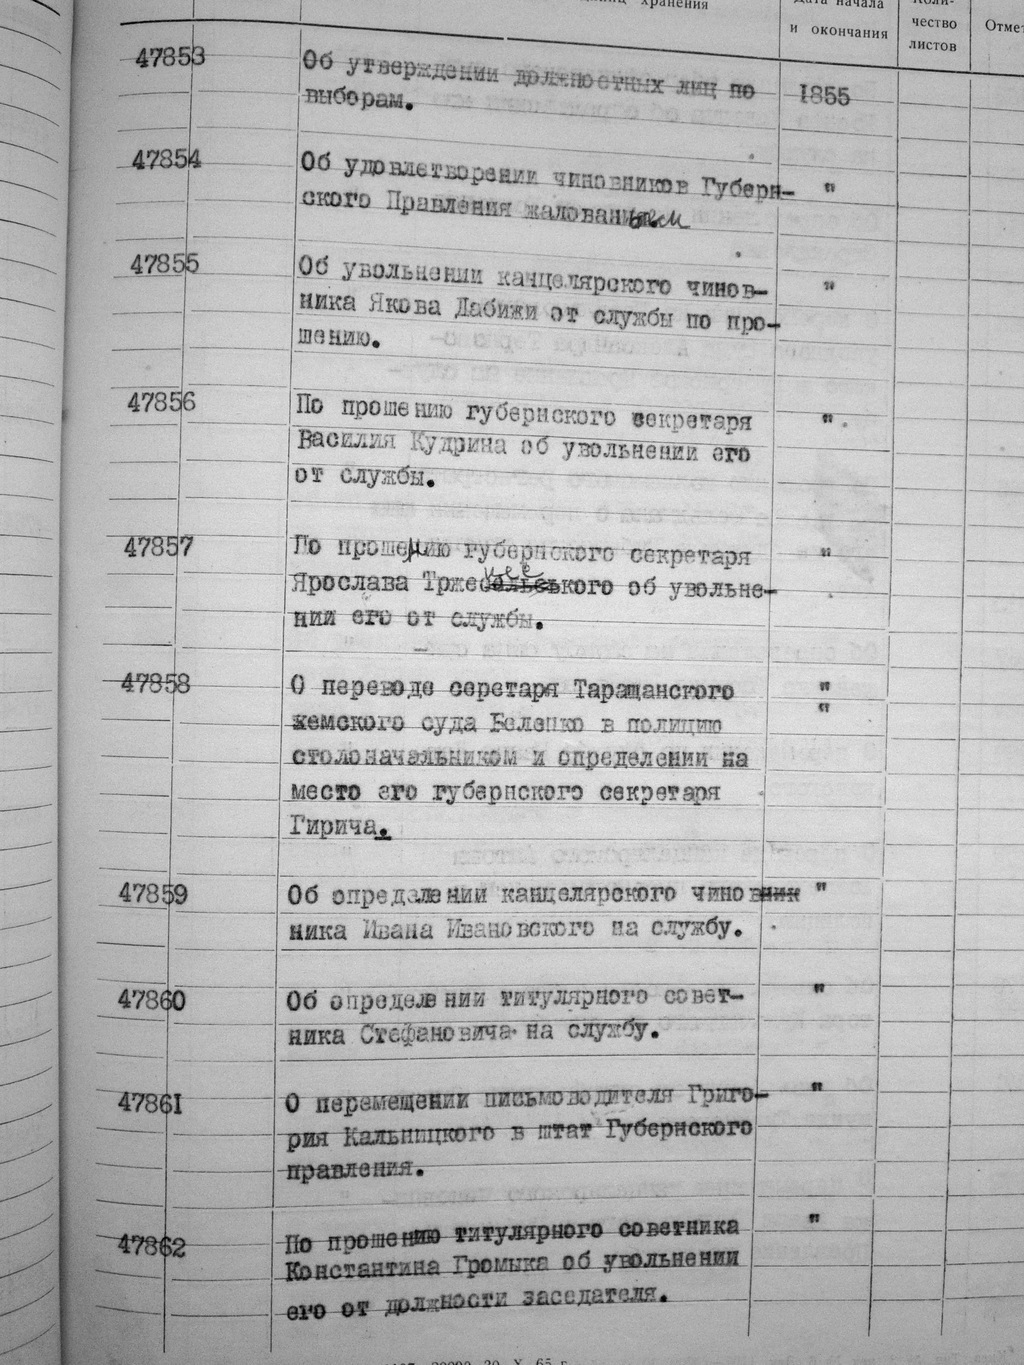 хранения
Дата начала
и окончания
Коли-
чество
листов
Отмет
47853 Об утверждении должностных лиц по 1855
выборам.
47854 Об удовлетворении чиновников Губерн- "
ского Правления жалованьем
47855 Об увольнении канцелярского чинов- "
ника Якова Дабижи от службы по про-
шению.
47856 По прошению губернского секретаря "
Василия Кудрина об увольнении его
от службы.
47857 По прошению губернского секретаря "
Ярослава Тржесецького об увольне-
нии его от службы.
47858 О переводе серетаря Таращанского "
земского суда Беленко в полицию "
столоначальником и определении на
место его губернского секретаря
Гирича.
47859 Об определении канцелярского чиновник "
ника Ивана Ивановского на службу.
47860 Об определении титулярного совет- "
ника Стефановича на службу.
47861 О перемещении письмоводителя Григо- "
рия Кальницкого в штат Губернского
правления.
47862 По прошению титулярного советника "
Константина Громыка об увольнении
его от должности заседателя.
20000 20 X 65 г.